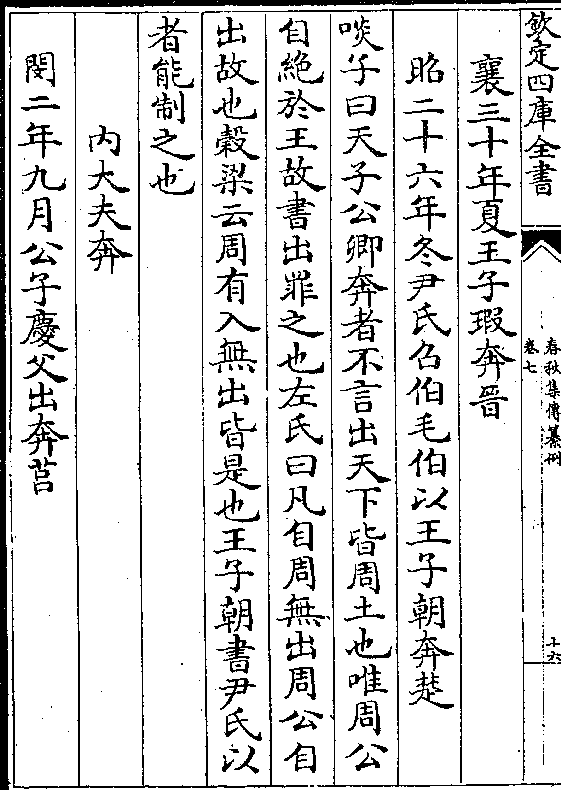 欽定四庫全書
春秋集傳纂例
卷七
十六
襄三十年夏王子瑕奔晉
昭二十六年冬尹氏召伯毛伯以王子朝奔楚
啖子曰天子公卿奔者不言出天下皆周土也唯周公
自絶於王故書出罪之也左氏曰凡自周無出周公自
出故也穀梁云周有入無出皆是也王子朝書尹氏以
者能制之也
内大夫奔
閔二年九月公子慶父出奔莒